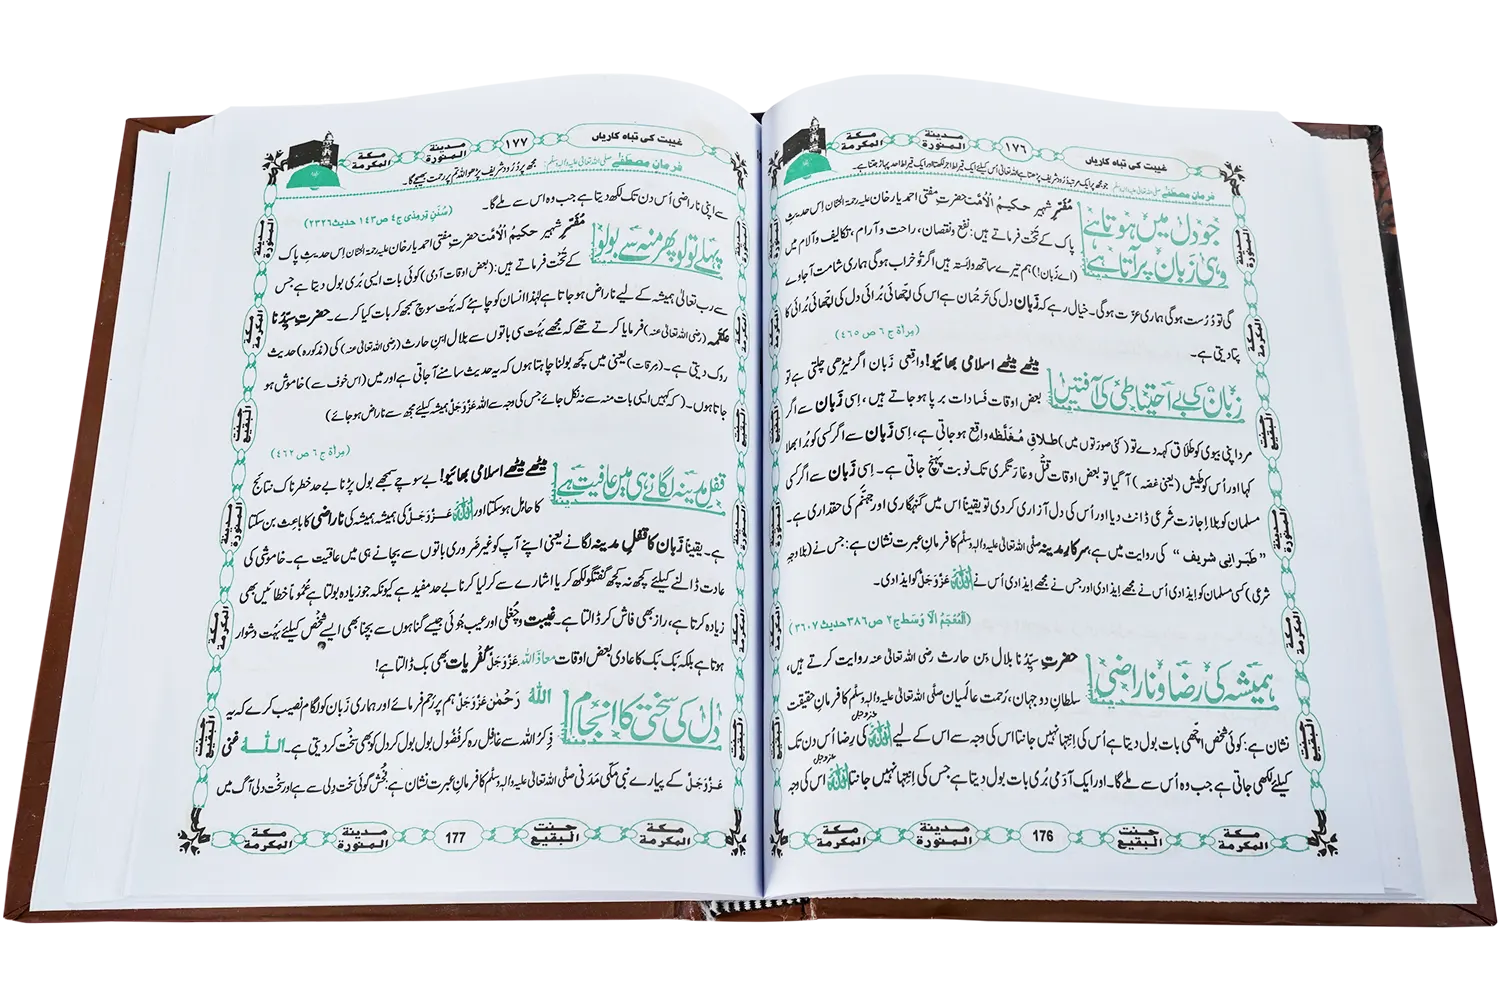 غیبت کی تباہ کاریاں
۱۷٦
مدینۃ المنورۃ
مکۃ المکرمۃ
فرمانِ مصطفٰے صلی اللہ تعالیٰ علیہ واٰلہٖ وسلّم: جو مجھ پر ایک مرتبہ دُرُود شریف پڑھتا ہے اللہ تعالیٰ اُس کیلئے ایک قیراط اجر لکھتا اور ایک قیراط احد پہاڑ جتنا ہے۔
جو دل میں ہوتا ہے
وہی زَبان پر آتا ہے
مُفَسّرِ شہیر حکیمُ الْاُمَّت حضرتِ مفتی احمد یار خان علیہ رحمۃ الحنّان اِس حدیثِ
پاک کے تَحت فرماتے ہیں: نفع و نقصان، راحت و آرام، تکالیف و آلام میں
(اے زَبان!) ہم تیرے ساتھ وابَستہ ہیں اگر تُو خراب ہوگی ہماری شامت آجاوے
گی تُو دُرُست ہوگی ہماری عزت ہوگی۔ خیال رہے کہ زَبان دل کی تَرجُمان ہے اس کی اچّھائی بُرائی دل کی اچّھائی بُرائی کا
پتا دیتی ہے۔
(مِراٰۃ ج ٦ ص ٤٦٥)
زبان کی بے احتیاطی کی آفتیں
میٹھے میٹھے اسلامی بھائیو! واقِعی زَبان اگر ٹیڑھی چلتی ہے تو
بعض اوقات فَسادات برپا ہوجاتے ہیں، اِسی زَبان سے اگر
مرد اپنی بیوی کو طَلَاق کہہ دے تو (کئی صورَتوں میں) طلاقِ مُغَلَّظہ واقِع ہو جاتی ہے، اِسی زَبان سے اگر کسی کو بُرا بھلا
کہا اور اُس کو طَیش (یعنی غصّہ) آگیا تو بعض اوقات قتل و غارَتگری تک نوبت پَہُنچ جاتی ہے۔ اِسی زَبان سے اگر کسی
مسلمان کو بِلا اِجازتِ شَرعی ڈانٹ دیا اور اُس کی دل آزاری کردی تو یقیناً اس میں گنہگاری اور جہنَّم کی حقداری ہے۔
”طَبَرانی شریف“ کی روایت میں ہے، سرکارِ مدینہ صلی اللہ تعالیٰ علیہ واٰلہٖ وسلّم کا فرمانِ عبرت نشان ہے: جس نے (بِلا وجہِ
شَرعی) کسی مسلمان کو ایذا دی اُس نے مجھے ایذا دی اور جس نے مجھے ایذا دی اُس نے اللہ عَزَّوَجَلَّ کو ایذا دی۔
(اَلْمُعْجَمُ الْاَوْسَط ج ٢ ص ٣٨٦ حدیث ٣٦٠٧)
ہمیشہ کی رضا و ناراضی
حضرتِ سیِّدُنا بلال بن حارث رضی اللہ تعالیٰ عنہ روایت کرتے ہیں،
سلطانِ دو جہان، رَحمتِ عالمیان صلی اللہ تعالیٰ علیہ واٰلہٖ وسلّم کا فرمانِ حقیقت
نشان ہے: کوئی شخص اچّھی بات بول دیتا ہے اُس کی اِنتِہا نہیں جانتا اس کی وجہ سے اس کے لیے اللہ عزوجل کی رِضا اُس دن تک
کیلئے لکھی جاتی ہے جب وہ اُس سے ملے گا۔ اور ایک آدَمی بُری بات بول دیتا ہے جس کی اِنتِہا نہیں جانتا اللہ عزوجل اس کی وجہ
مکۃ المکرمۃ
مدینۃ المنورۃ
176
جنت البقیع
مکۃ المکرمۃ
غیبت کی تباہ کاریاں
۱۷۷
مدینۃ المنورۃ
مکۃ المکرمۃ
فرمانِ مصطفٰے صلی اللہ تعالیٰ علیہ واٰلہٖ وسلّم: مجھ پر دُرُود شریف پڑھو اللہ تم پر رحمت بھیجے گا۔
سے اپنی ناراضی اُس دن تک لکھ دیتا ہے جب وہ اس سے ملے گا۔
(سُنَنِ تِرمِذی ج ٤ ص ١٤٣ حدیث ٢٣٢٦)
پہلے تولو پھر منہ سے بولو
مُفَسّرِ شہیر حکیمُ الْاُمَّت حضرتِ مفتی احمد یار خان علیہ رحمۃ الحنّان اِس حدیثِ پاک
کے تَحت فرماتے ہیں: (بعض اوقات آدَمی) کوئی بات ایسی بُری بول دیتا ہے جس
سے رب تعالیٰ ہمیشہ کے لیے ناراض ہو جاتا ہے لہٰذا انسان کو چاہئے کہ بَہُت سوچ سمجھ کر بات کیا کرے۔ حضرتِ سیِّدُنا
علقمہ (رضی اللہ تعالیٰ عنہ) فرمایا کرتے تھے کہ مجھے بَہُت سی باتوں سے بلال ابنِ حارث (رضی اللہ تعالیٰ عنہ) کی (مذکورہ) حدیث
روک دیتی ہے۔ (مرقات) یعنی میں کچھ بولنا چاہتا ہوں کہ یہ حدیث سامنے آ جاتی ہے اور میں (اس خوف سے) خاموش ہو
جاتا ہوں۔ (کہ کہیں ایسی بات منہ سے نہ نکل جائے جس کی وجہ سے اللہ عَزَّوَجَلَّ ہمیشہ کیلئے مجھ سے ناراض ہوجائے)
(مِراٰۃ ج ٦ ص ٤٦٢)
قفلِ مدینہ لگانے ہی میں عافیت ہے
میٹھے میٹھے اسلامی بھائیو! بے سوچے سمجھے بول پڑنا بے حد خطرناک نتائج
کا حامِل ہوسکتا اور اللہ عَزَّوَجَلَّ کی ہمیشہ ہمیشہ کی ناراضی کا باعِث بن سکتا
ہے۔ یقیناً زَبان کا قفلِ مدینہ لگانے یعنی اپنے آپ کو غیر ضَروری باتوں سے بچانے ہی میں عافیّت ہے۔ خاموشی کی
عادت ڈالنے کیلئے کچھ نہ کچھ گفتگو لکھ کر یا اشارے سے کرلیا کرنا بے حد مفید ہے کیونکہ جو زیادہ بولتا ہے عُمُوماً خطائیں بھی
زیادہ کرتا ہے، راز بھی فاش کر ڈالتا ہے۔ غیبت و چُغلی اور عیب جُوئی جیسے گناہوں سے بچنا بھی ایسے شخص کیلئے بَہُت دشوار
ہوتا ہے بلکہ بَک بَک کا عادی بعض اوقات معاذاللہ عَزَّوَجَلَّ کُفرِیات بھی بک ڈالتا ہے!
دل کی سختی کا انجام
اللہ رَحْمٰن عَزَّوَجَلَّ ہم پر رَحم فرمائے اور ہماری زَبان کو لگام نصیب کرے کہ یہ
ذِکرُ اللہ سے غافل رہ کر فُضُول بول بول کر دل کو بھی سخت کر دیتی ہے۔ اللہ غنی
عَزَّوَجَلَّ کے پیارے نبی مکّی مَدَنی صلی اللہ تعالیٰ علیہ واٰلہٖ وسلّم کا فرمانِ عبرت نشان ہے: فُحش گوئی سخت دِلی سے ہے اور سخت دِلی آگ میں
مکۃ المکرمۃ
مدینۃ المنورۃ
177
جنت البقیع
مکۃ المکرمۃ